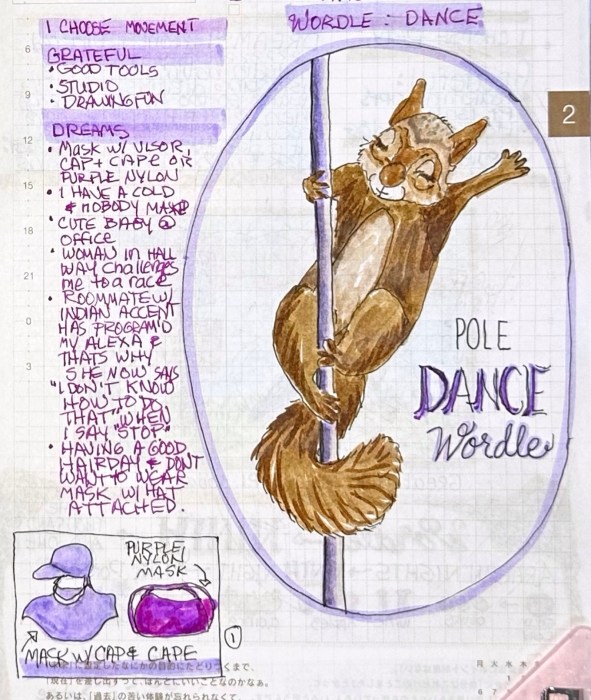 I CHOOSE MOVEMENT
GRATEFUL
• GOOD TOOLS
• STUDIO
• DRAWING FUN
DREAMS
• MASK W/ VISOR,
CAP + CAPE OR
PURPLE NYLON
• I HAVE A COLD
& NOBODY MAKD
• CUTE BABY @
OFFICE
• WOMAN IN HALL
WAY Challenges
me to a race
• ROOMMATE W/
INDIAN ACCENT
HAS PROGRAM'D
MY ALEXA &
THATS WHY
SHE NOW SAYS
"I DON'T KNOW
HOW TO DO
THAT" WHEN
I SAY "STOP"
• HAVING A GOOD
HAIRDAY & DONT
WANT TO WEAR
MASK W/ HAT
ATTACHED.
WORDLE : DANCE
POLE
DANCE
Wordle
2
6
9
12
15
18
21
0
3
PURPLE
NYLON
MASK
MASK W/ CAP & CAPE
1
月 火 水 木